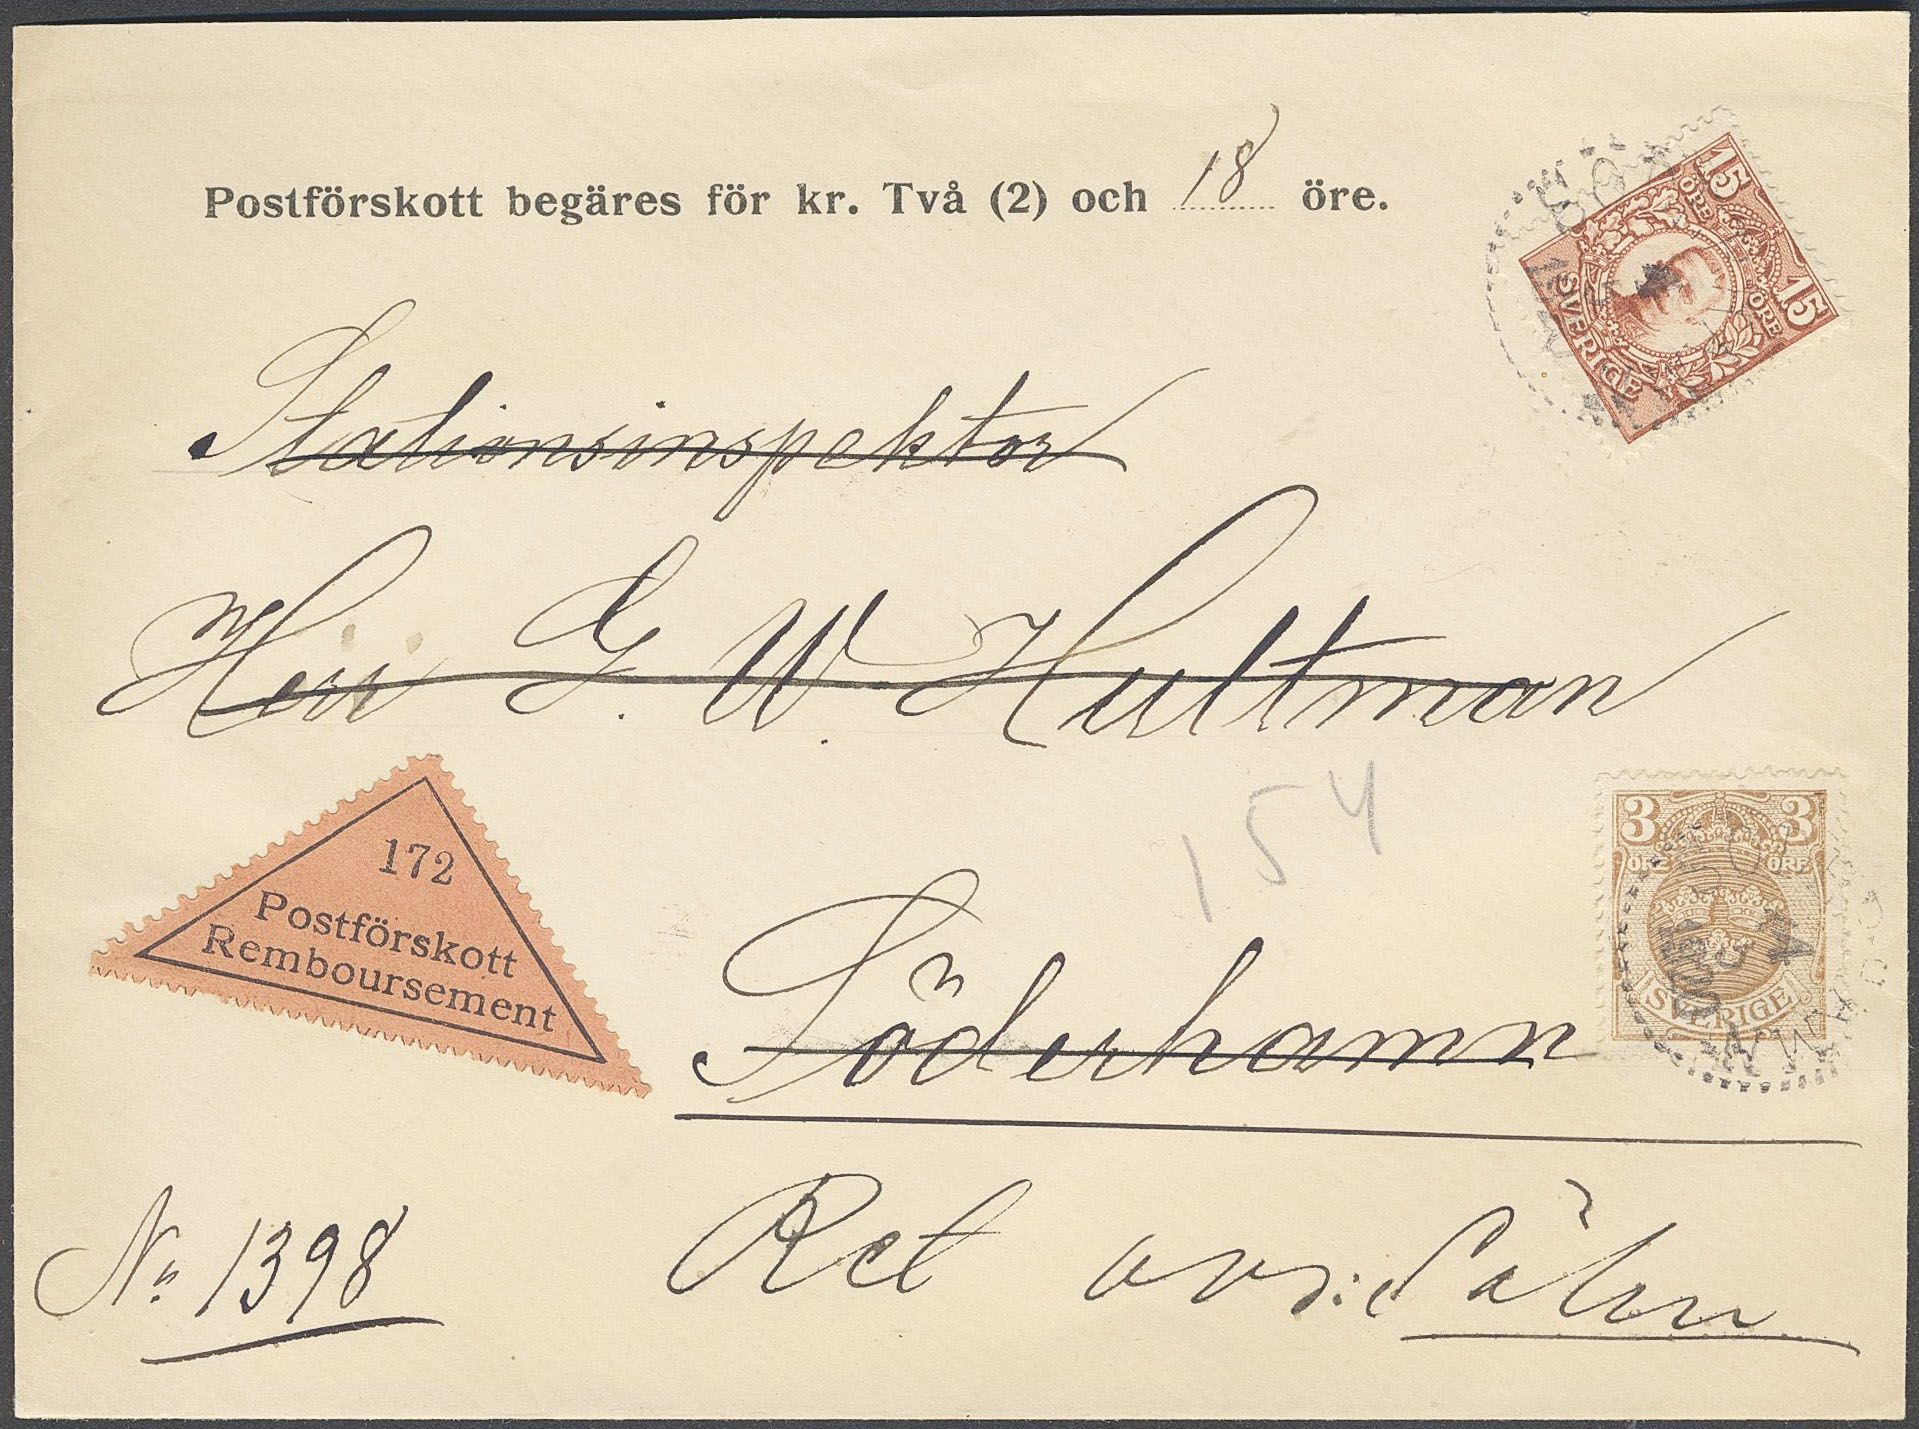 Postförskott begäres för kr. Två (2) och 18 öre.
15 ÖRE
15 ÖRE
SVERIGE
Stationsinspektor
Herr G. W. Hultman
154
3 ÖRE
3 ÖRE
SVERIGE
172
Postförskott
Remboursement
Söderhamn
No 1398
Ret